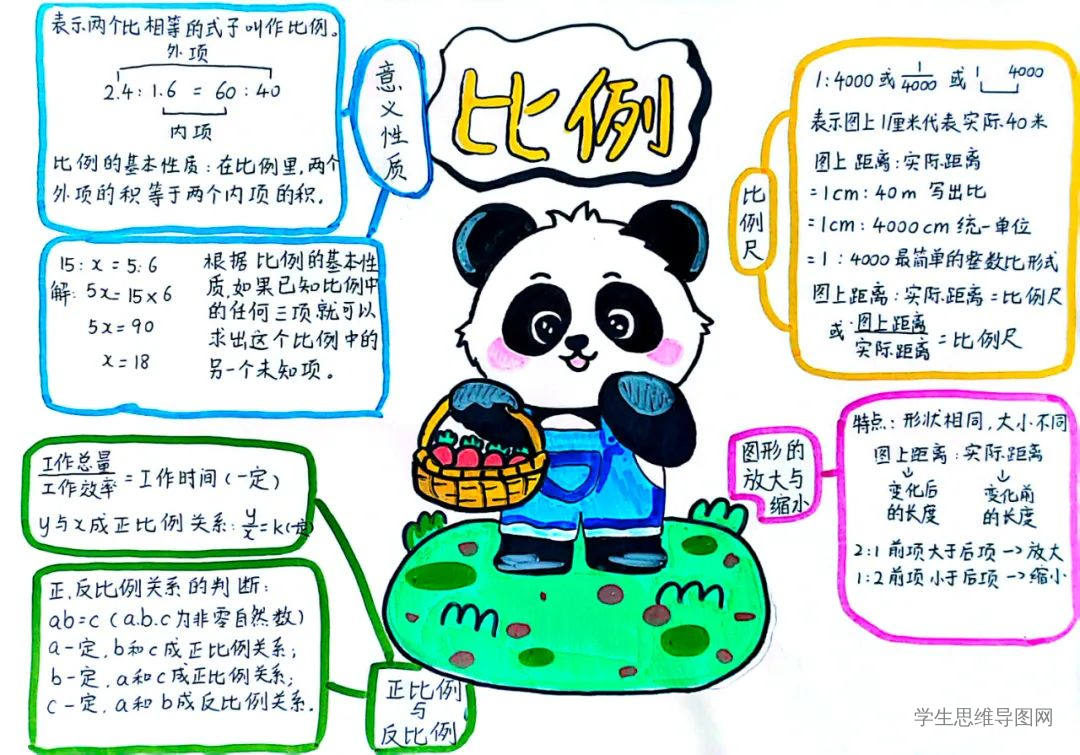 比例
意义性质
表示两个比相等的式子叫作比例。
外项
2.4 : 1.6 = 60 : 40
内项
比例的基本性质:在比例里,两个
外项的积等于两个内项的积。
15 : x = 5 : 6
解: 5x = 15×6
5x = 90
x = 18
根据比例的基本性
质,如果已知比例中
的任何三项就可以
求出这个比例中的
另一个未知项。
比例尺
1:4000 或 1/4000 或 1 4000
表示图上1厘米代表实际40米
图上距离:实际距离
=1cm:40m 写出比
=1cm:4000cm 统一单位
=1:4000 最简单的整数比形式
图上距离:实际距离=比例尺
或 图上距离/实际距离 =比例尺
图形的
放大与
缩小
特点:形状相同,大小不同
图上距离:实际距离
变化后 变化前
的长度 的长度
2:1 前项大于后项→放大
1:2 前项小于后项→缩小
工作总量/工作效率 =工作时间(一定)
y与x成正比例关系: y/x = k(一定)
正,反比例关系的判断:
ab=c (a.b.c为非零自然数)
a一定,b和c成正比例关系;
b一定,a和c成正比例关系;
c一定,a和b成反比例关系.
正比例
与
反比例
学生思维导图网